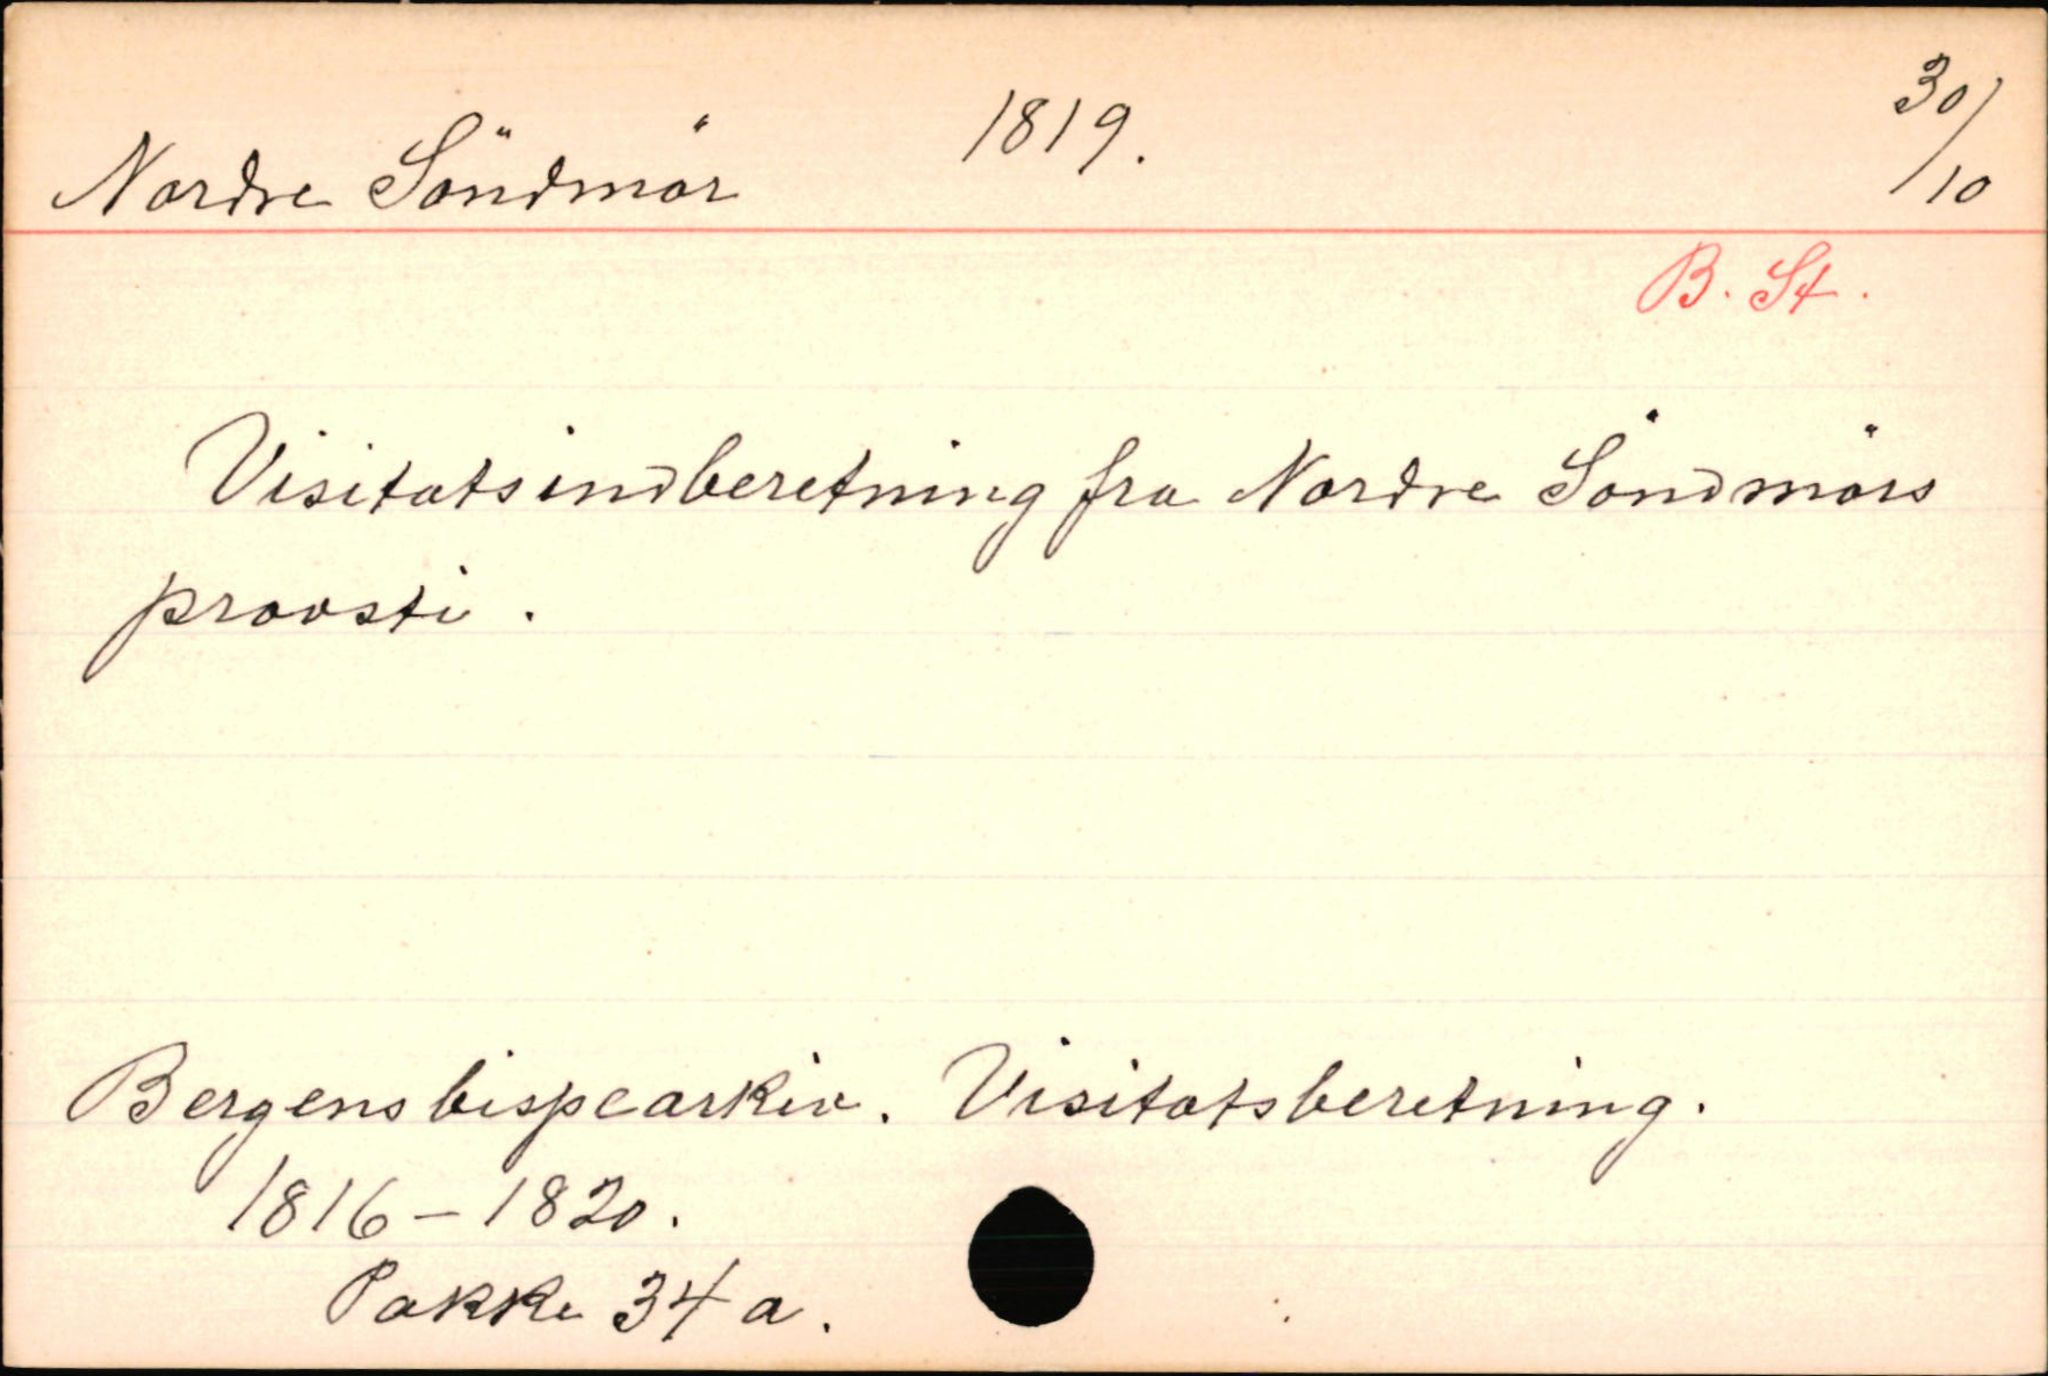 Nordre Söndmör 1819. 30/10
B. St.
Visitatsindberetning fra Nordre Söndmörs
provsti.
Bergens bispearkiv. Visitatsberetning.
1816-1820.
Pakke 34 a.